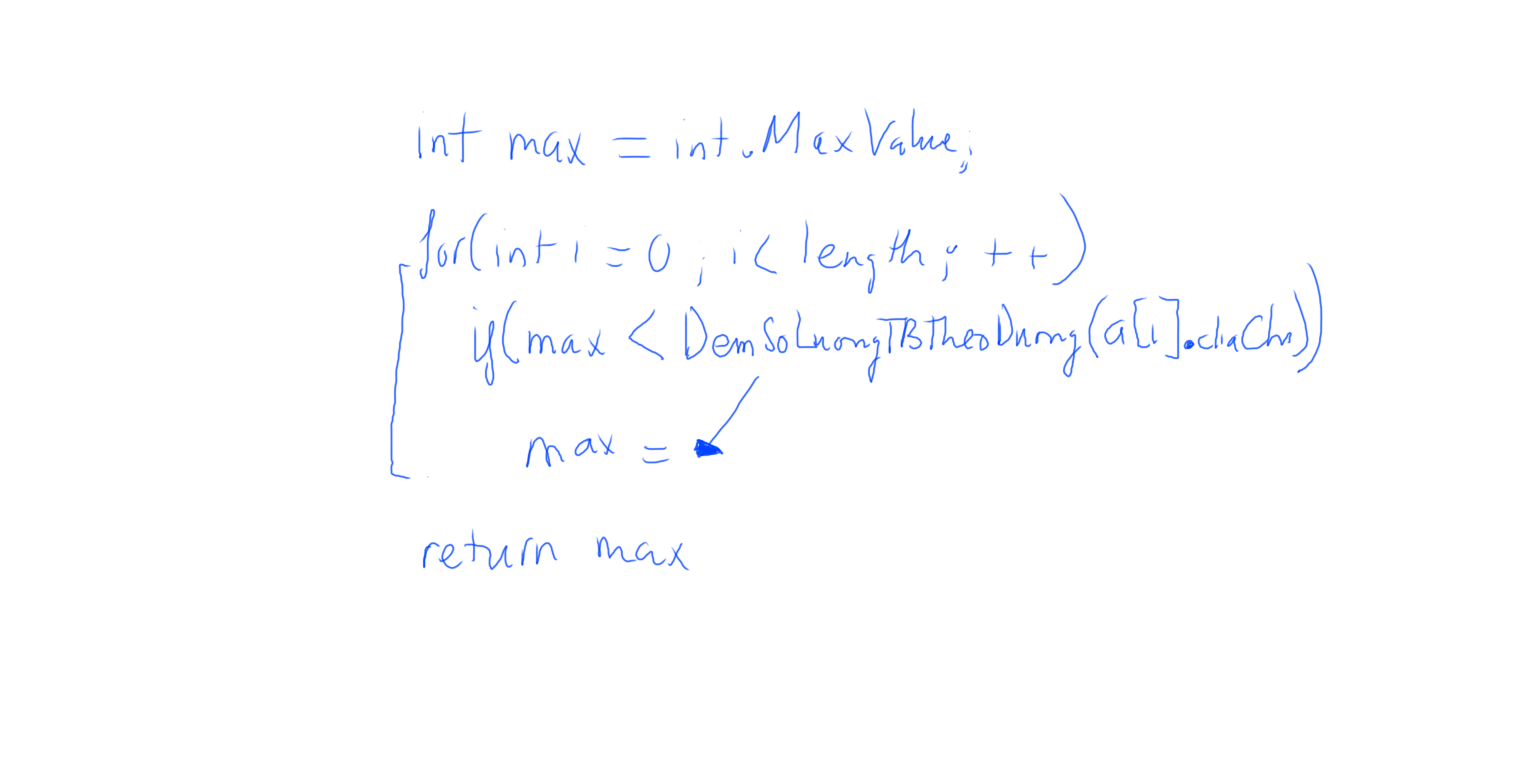 int max = int.MaxValue;
for(int i = 0 ; i < length ; ++)
if(max < DemSoLuongTBTheoDuong(a[i].diaChi))
max =
return max